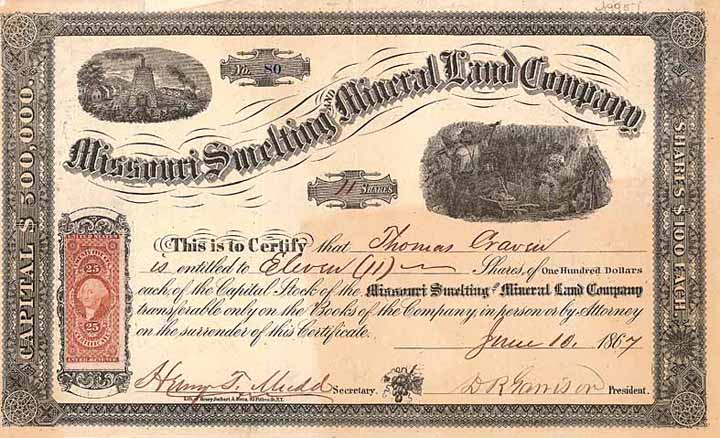 No. 80
Missouri Smelting AND Mineral Land Company
11 SHARES
CAPITAL $500,000.
SHARES $100 EACH.
This is to Certify that Thomas Craven
is entitled to Eleven (11) Shares, of One Hundred Dollars
each of the Capital Stock of the Missouri Smelting and Mineral Land Company
transferable only on the Books of the Company, in person or by Attorney
on the surrender of this Certificate.
June 10, 1867
25
25
CERTIFICATE
Henry T. Mudd Secretary.
D R Garrison President.